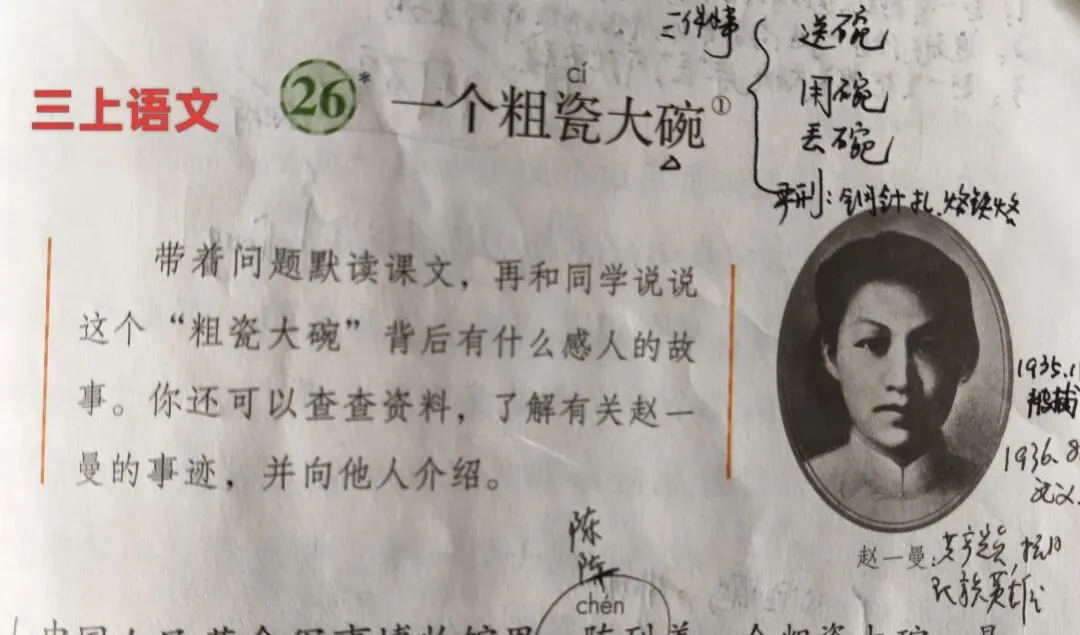 三件事
送碗
用碗
丢碗
三上语文
26*
cí
一个粗瓷大碗①
严刑：钢针扎、烙铁烙
带着问题默读课文，再和同学说说
这个“粗瓷大碗”背后有什么感人的故
事。你还可以查查资料，了解有关赵一
曼的事迹，并向他人介绍。
1935.1
被捕
1936.8
赵一曼：共产党员，抗日
民族英雄
陈
陈
chén